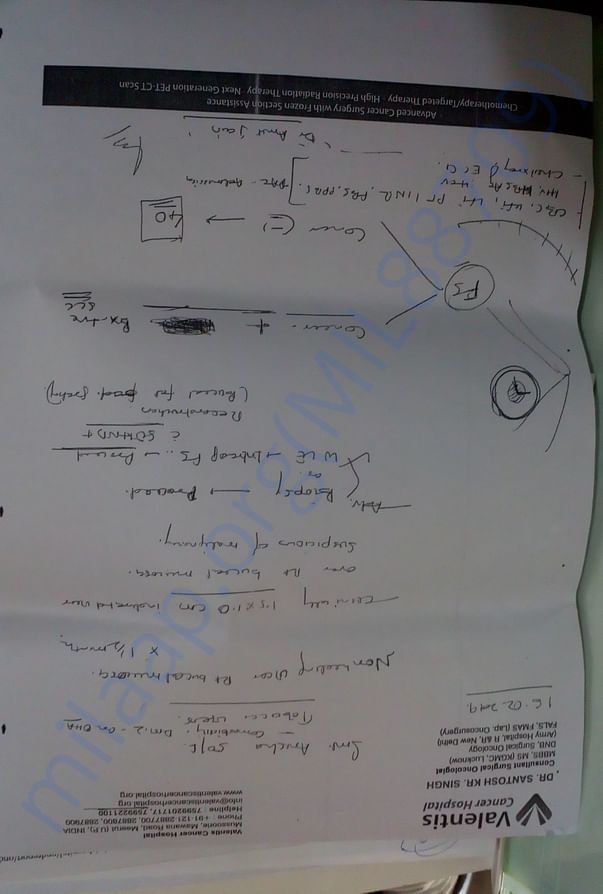 Valentis
Cancer Hospital
DR. SANTOSH KR. SINGH
Consultant Surgical Oncologist
MBBS, MS (KGMC, Lucknow)
DNB, Surgical Oncology
(Army Hospital, R &R, New Delhi)
FALS, FMAS (Lap. Oncosurgery)
Valentis Cancer Hospital
Mussoorie, Mawana Road, Meerut (U.P), INDIA
Phone : +91-121-2887700, 2887800, 2887900
Helpline : 7599201717, 7599221100
info@valentiscancerhospital.org
www.valentiscancerhospital.org
16.02.2019
Smt. 50/F.
- Comorbidity - Dm-2 - on OHA
Tobacco users.
Non healing ulcer Rt buccal mucosa.
x 1½ month,
Clinically 1.5 x 1.0 cm indurated ulcer
over Rt buccal mucosa.
Suspicious of malignancy.
Adv. Biopsy → Proceed.
or
WLE → Intraop FS .. → Proceed
Reconstruction
(Buccal fat pad.
FS
Cancer - + Bx
SCC
Cancer (-) → 40
- CBC, KFT, LFT, PT/INR, FBS, PPBS
HIV, HBsAg, HCV
- Chest xray, ECG.
"Dr Amit Jain"
Advanced Cancer Surgery with Frozen Section Assistance
Chemotherapy/Targeted Therapy - High Precision Radiation Therapy - Next Generation PET-CT Scan
milaap.org(MIL88709)